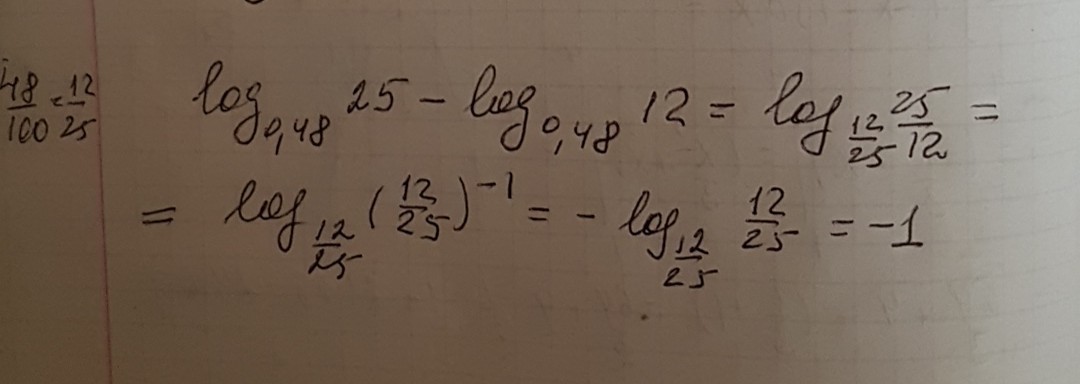 48/100 = 12/25
log_{0,48} 25 - log_{0,48} 12 = log_{12/25} 25/12 =
= log_{12/25} (12/25)^{-1} = - log_{12/25} 12/25 = -1